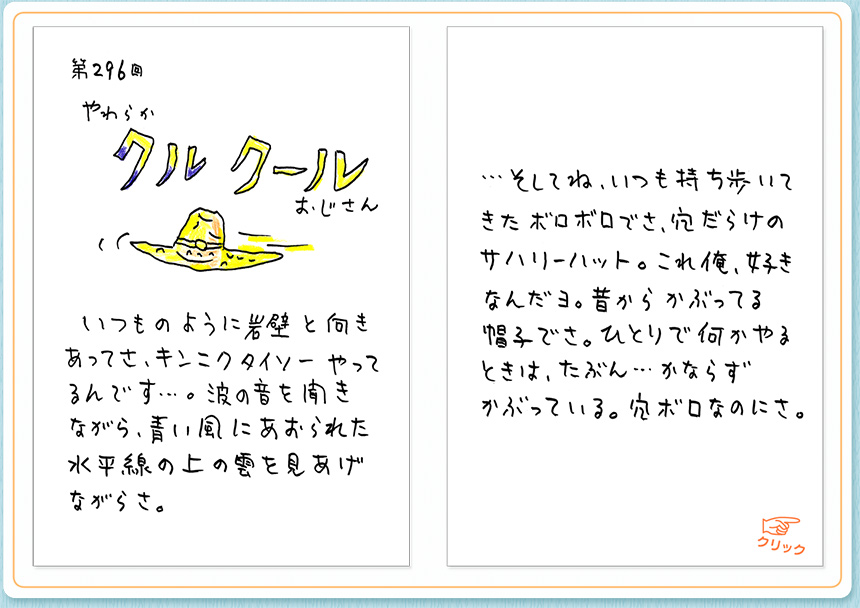 第296回
やわらか
クルクール
おじさん
いつものように岩壁と向き
あってさ、キンニクタイソーやって
るんです…。波の音を聞き
ながら、青い風にあおられた
水平線の上の雲を見あげ
ながらさ。
…そしてね、いつも持ち歩いて
きたボロボロでさ、穴だらけの
サハリーハット。これ俺、好き
なんだヨ。昔からかぶってる
帽子でさ。ひとりで何かやる
ときは、たぶん…かならず
かぶっている。穴ボロなのにさ。
クリック